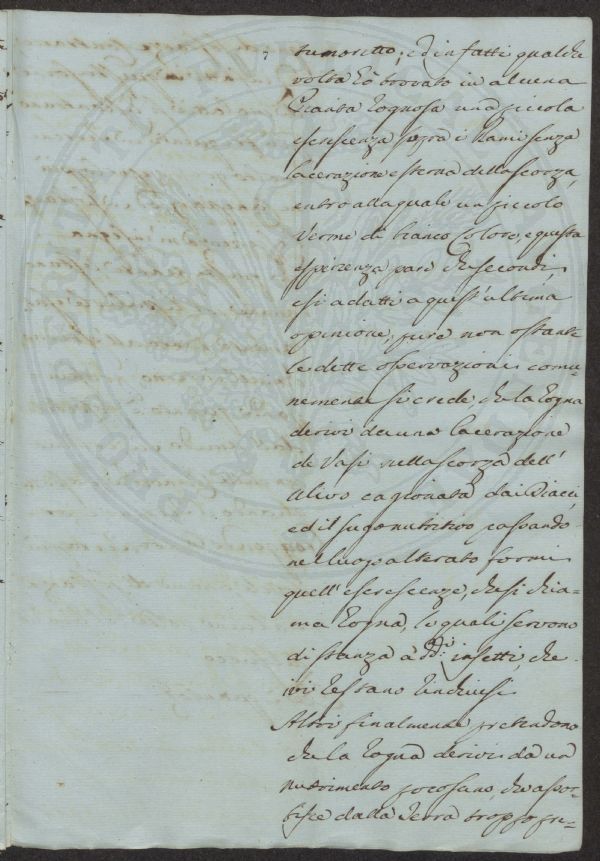 tumoretto; ed in fatti qualche
volta hò trovato in alcuna
Pianta Rognosa una piccola
escrescenza sopra i Rami senza
lacerazione esterna della scorza,
entro alla quale un piccolo
Verme di bianco Colore, e questa
esperienza pare che secondi,
e si adatti a quest'ultima
opinione; pure non ostante
le dette osservazioni comu-
nemente si crede che la Rogna
derivi da una lacerazione
di Vasi nella scorza dell'
Ulivo cagionata dai Diacci,
ed il sugo nutritivo passando
nel luogo alterato formi
quell'escrescenze, che si chia-
ma Rogna, le quali servono
di stanza à dd:i insetti, che
ivi restano rinchiusi.
Altri finalmente pretendono
che la Rogna derivi da un
nutrimento poco sano, che assor-
bisce dalla Terra troppo fre-